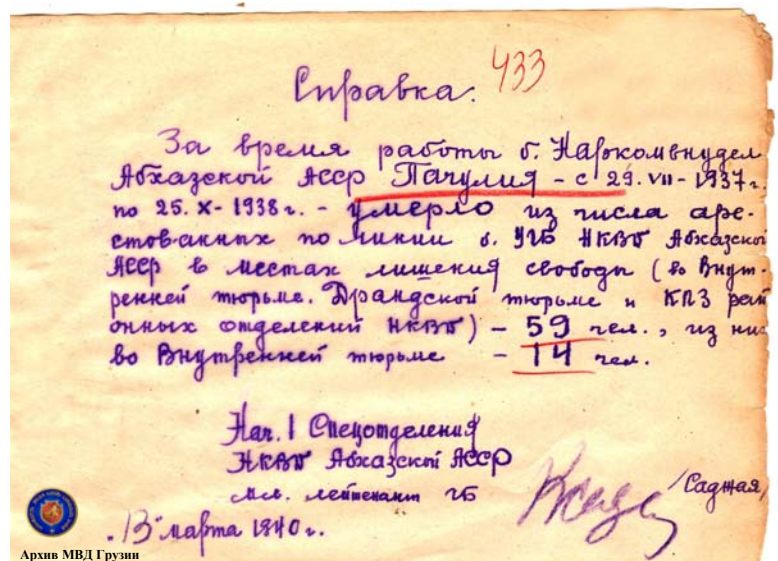 Справка. 433
За время работы б. Наркомвнудел
Абхазской АССР Пачулия - с 29.VII-1937г.
по 25.X-1938г. - умерло из числа аре-
стованных по линии б. УГБ НКВД Абхазской
АССР в местах лишения свободы (во Внут-
ренней тюрьме. Драндской тюрьме и КПЗ рай
онных отделений НКВД) - 59 чел., из них
во Внутренней тюрьме - 14 чел.
Нач. 1 Спецотделения
НКВД Абхазской АССР
мл. лейтенант ГБ /Саджая/
"13" марта 1940 г.
Архив МВД Грузии